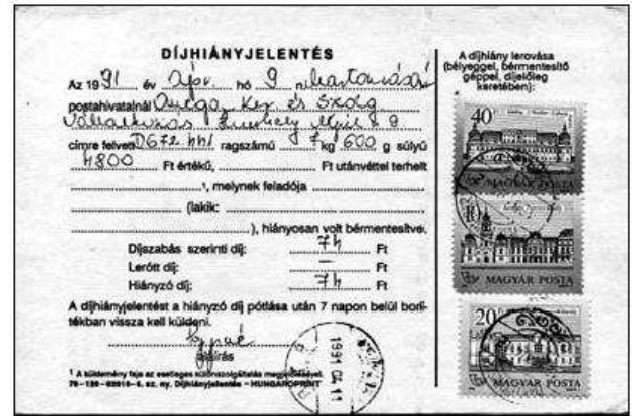 DÍJHIÁNYJELENTÉS
Az 1991 év Ápr. hó 9 n.
postahivatalnál Omega Ker és Szolg
Vállalkozás
címre felvett D672 441 ragszámú 7 kg 600 g súlyú
4800 Ft értékű, Ft utánvéttel terhelt
¹, melynek feladója
(lakik:
), hiányosan volt bérmentesítve.
Díjszabás szerinti díj: 74 Ft
Lerótt díj: — Ft
Hiányzó díj: 74 Ft
A díjhiányjelentést a hiányzó díj pótlása után 7 napon belül borí-
tékban vissza kell küldeni.
aláírás
¹ A küldemény faja az esetleges különszolgáltatás megjelölésével.
HUNGAROPRINT
1991 04 11
A díjhiány lerovása
(bélyeggel, bérmentesítő
géppel, díjelőleg
keretében):
40
MAGYAR POSTA
10
MAGYAR POSTA
20
MAGYAR POSTA